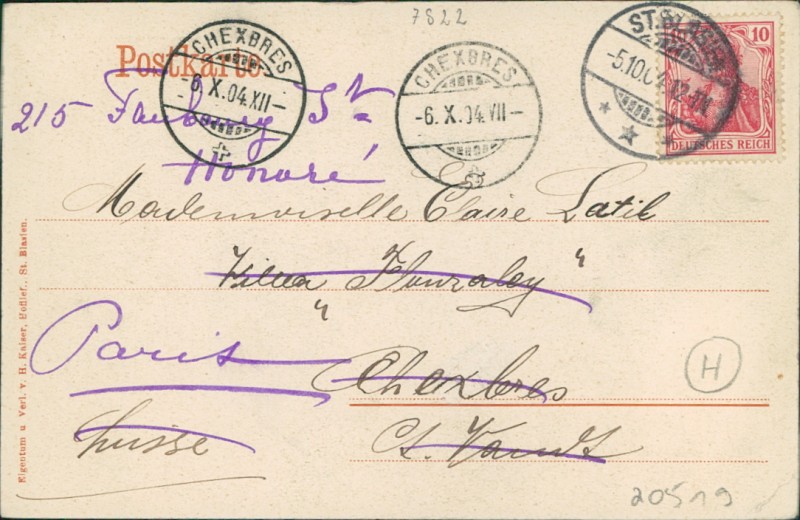 7822
Postkarte
CHEXBRES
-6.X.04.XII-
CHEXBRES
-6.X.04.VII-
ST. BLASIEN
-5.10.04
10
DEUTSCHES REICH
215 Faubourg St
Honoré
Mademoiselle Claire Latil
Villa Flonzaley "
"
Paris
Chexbres
Suisse
Ct. Vaud
H
20519
Eigentum u. Verl. v. H. Kaiser, Hoflief., St. Blasien.